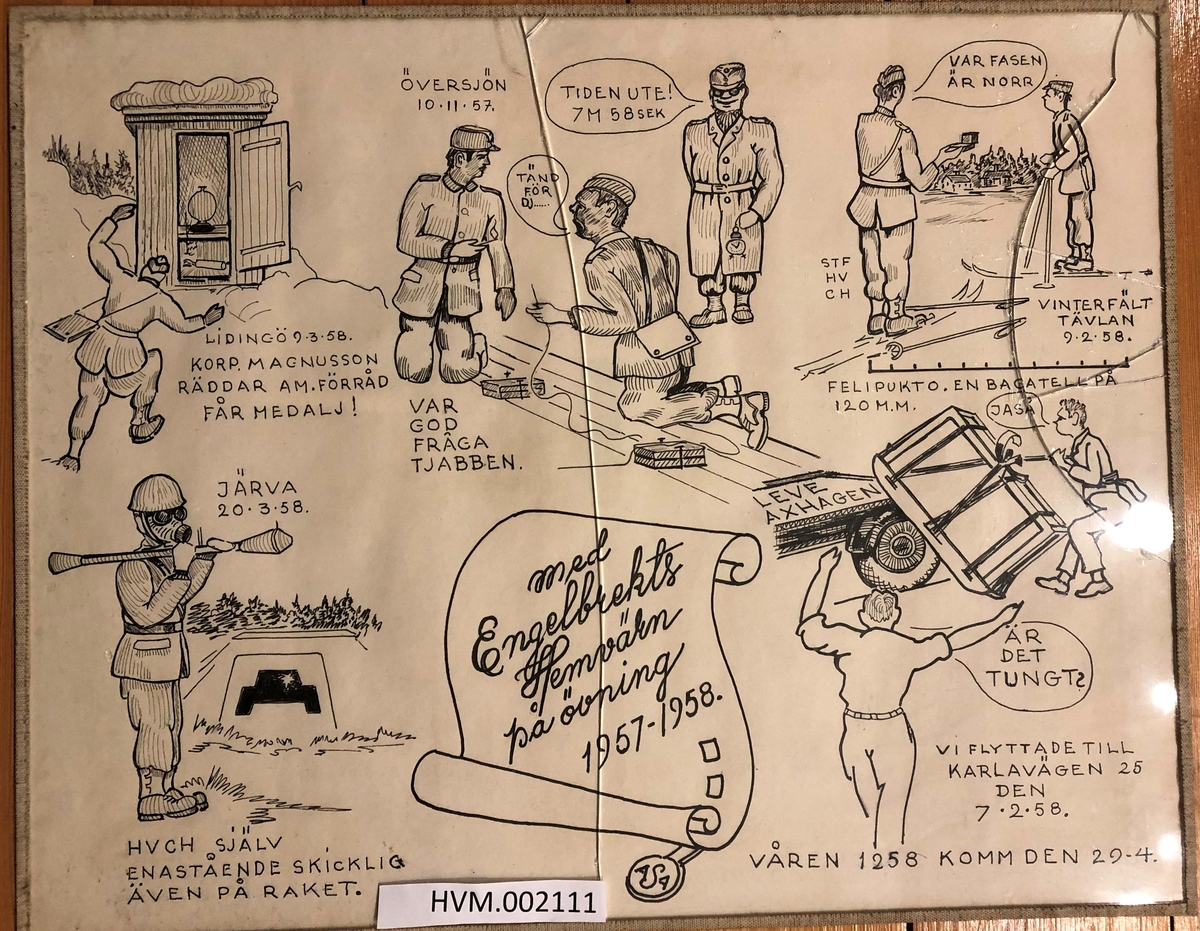 ÖVERSJÖN
10·11·57.
TIDEN UTE!
7M 58SEK
VAR FASEN
ÄR NORR
TÄND
FÖR
DJ......
STF
HV
CH
LIDINGÖ 9·3·58.
KORP. MAGNUSSON
RÄDDAR AM.FÖRRÅD
FÅR MEDALJ!
VINTERFÄLT
TÄVLAN
9·2·58.
FELIPUKTO. EN BAGATELL PÅ
120 M.M.
VAR
GOD
FRÅGA
TJABBEN.
JASÅ
JÄRVA
20·3·58.
LEVE
AXHAGEN
med
Engelbrekts
Hemvärn
på övning
1957-1958.
ÄR
DET
TUNGT?
VI FLYTTADE TILL
KARLAVÄGEN 25
DEN
7·2·58.
HVCH SJÄLV
ENASTÅENDE SKICKLIG
ÄVEN PÅ RAKET.
VÅREN 1258 KOMM DEN 29-4.
HVM.002111